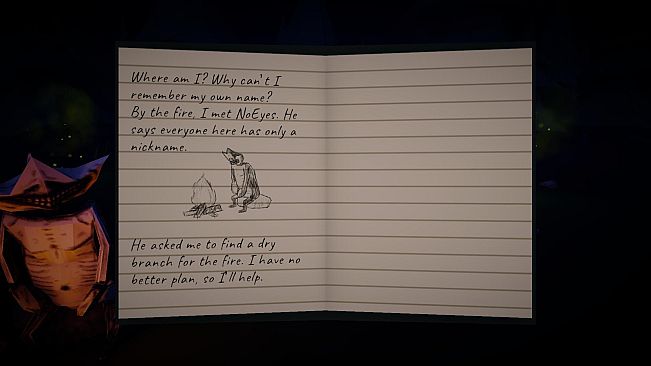 Where am I? Why can't I
remember my own name?
By the fire, I met NoEyes. He
says everyone here has only a
nickname.
He asked me to find a dry
branch for the fire. I have no
better plan, so I'll help.